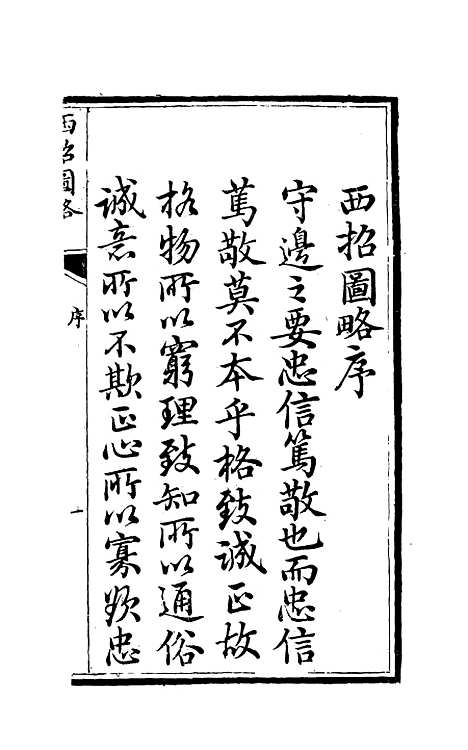 西招圖略序
守邊之要忠信篤敬也而忠信
篤敬莫不本乎格致誠正故
格物所以窮理致知所以通俗
誠意所以不欺正心所以寡欲忠
西招圖略
序
一